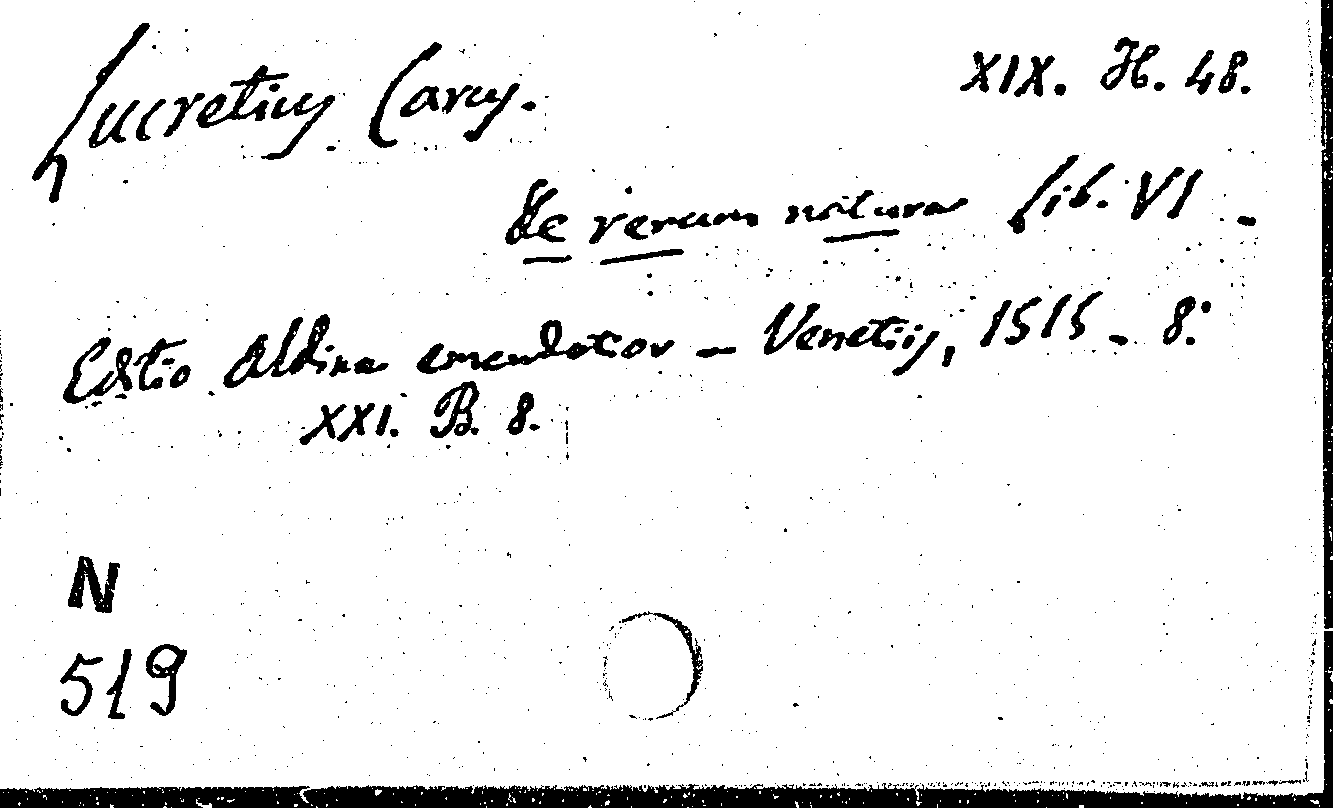 Lucretius Carus. XIX. H. 48.
De rerum natura Lib. VI -
Editio Aldina emendatior - Venetiis, 1515 - 8:
XXI. B. 8.
N
519